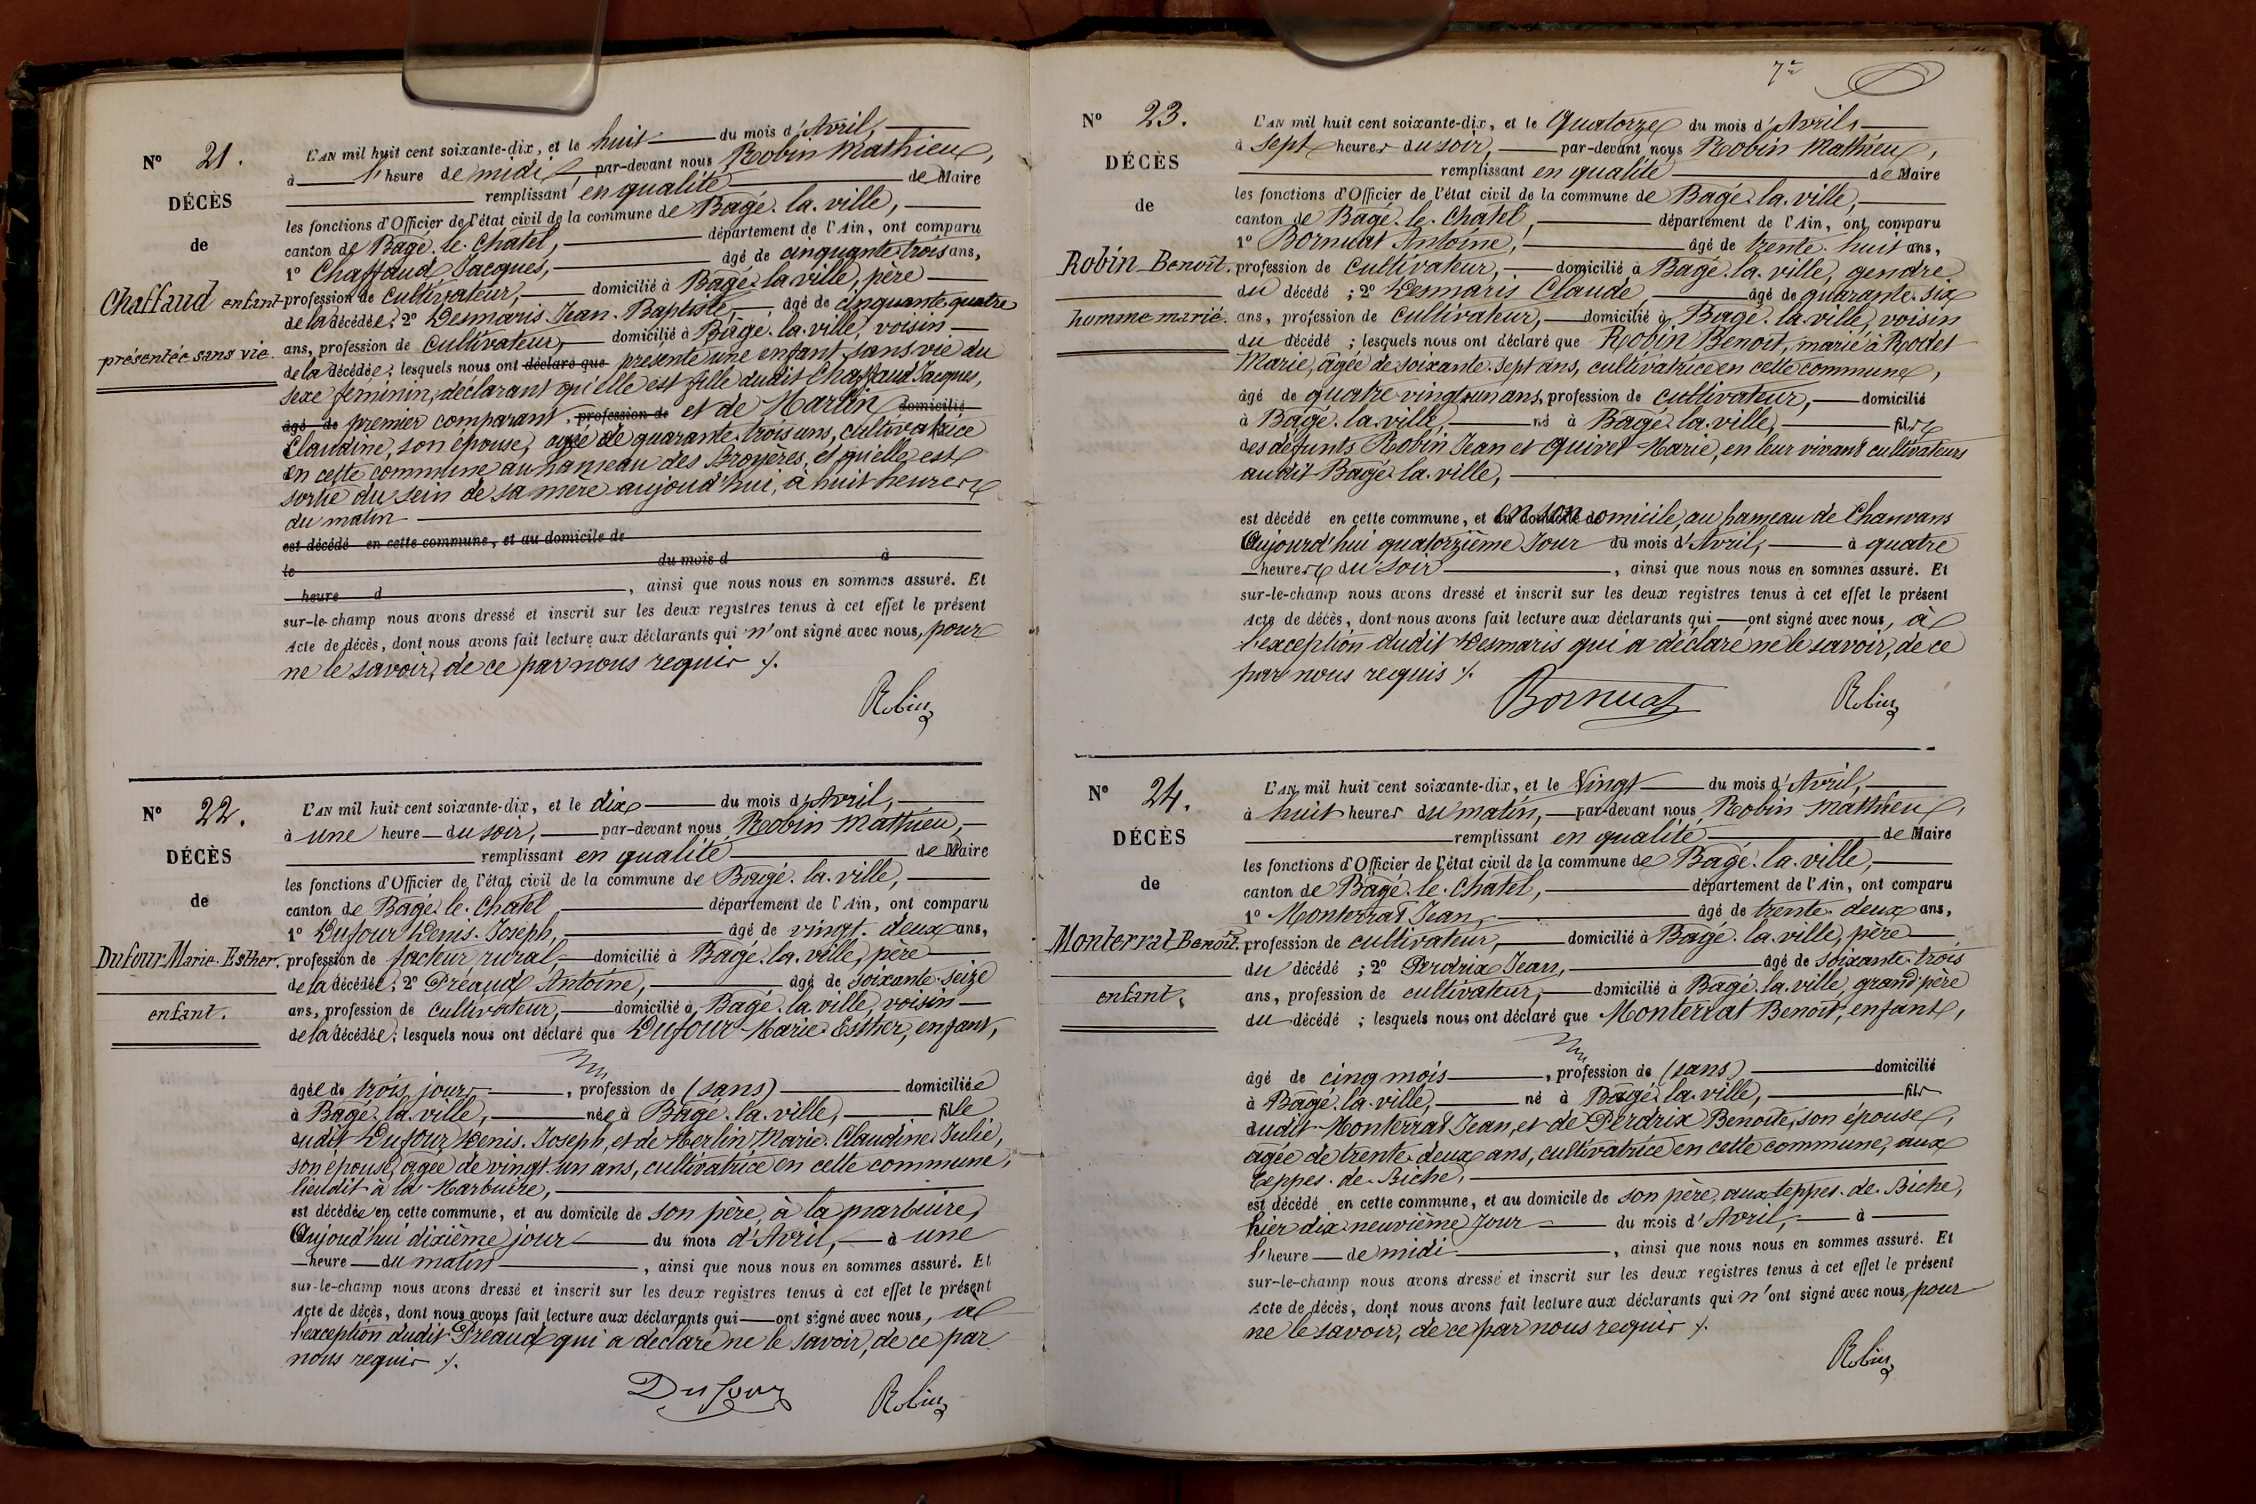 N° 21.
DÉCÈS
de
Chaffaud enfant
présentée sans vie.
L'AN mil huit cent soixante-dix, et le huit du mois d'Avril,
à l'heure de midi, par-devant nous Robin Mathieu,
remplissant en qualité de Maire
les fonctions d'Officier de l'état civil de la commune de Bagé-la-ville,
canton de Bagé-le-Chatel, département de l'Ain, ont comparu
1° Chaffaud Jacques, âgé de cinquante-trois ans,
profession de cultivateur, domicilié à Bagé-la-ville, père
de la décédée; 2° Desmaris Jean-Baptiste, âgé de cinquante-quatre
ans, profession de cultivateur, domicilié à Bagé-la-ville, voisin
de la décédée; lesquels nous ont déclaré que présenté une enfant sans vie du
sexe féminin, déclarant qu'elle est fille dudit Chaffaud Jacques,
âgé de premier comparant, profession de et de Martin domicilié
Claudine, son épouse, agée de quarante-trois ans, cultivatrice
en cette commune au hameau des Broyères, et qu'elle est
sortie du sein de sa mère aujourd'hui, à huit heures
du matin
est décédé en cette commune, et au domicile de
le du mois d à
heure d , ainsi que nous nous en sommes assuré. Et
sur-le-champ nous avons dressé et inscrit sur les deux registres tenus à cet effet le présent
Acte de décès, dont nous avons fait lecture aux déclarants qui n'ont signé avec nous, pour
ne le savoir, de ce par nous requis ⁒.
Robin
N° 22.
DÉCÈS
de
Dufour Marie-Esther.
enfant.
L'AN mil huit cent soixante-dix, et le dix du mois d'Avril,
à une heure du soir, par-devant nous Robin Mathieu,
remplissant en qualité de Maire
les fonctions d'Officier de l'état civil de la commune de Bagé-la-ville,
canton de Bagé-le-Chatel département de l'Ain, ont comparu
1° Dufour Denis-Joseph, âgé de vingt-deux ans,
profession de facteur rural, domicilié à Bagé-la-ville, père
de la décédée; 2° Préaud Antoine, âgé de soixante-seize
ans, profession de cultivateur, domicilié à Bagé-la-ville, voisin
de la décédée; lesquels nous ont déclaré que Dufour Marie-Esther, enfant,
âgée de trois jours, profession de (sans) domiciliée
à Bagé-la-ville, née à Bagé-la-ville, fille
dudit Dufour Denis-Joseph, et de Merlin Marie-Claudine-Julie,
son épouse, agée de vingt-un ans, cultivatrice en cette commune,
lieudit à la Marbuire,
est décédée en cette commune, et au domicile de son père, à la marbuire,
Aujourd'hui dixième jour du mois d'Avril, à une
heure du matin, ainsi que nous nous en sommes assuré. Et
sur-le-champ nous avons dressé et inscrit sur les deux registres tenus à cet effet le présent
Acte de décès, dont nous avons fait lecture aux déclarants qui ont signé avec nous, à
l'exception dudit Préaud qui a déclaré ne le savoir, de ce par
nous requis ⁒.
Dufour Robin
7e
N° 23.
DÉCÈS
de
Robin Benoît.
homme marié.
L'AN mil huit cent soixante-dix, et le Quatorze du mois d'Avril,
à sept heures du soir, par-devant nous Robin Mathieu,
remplissant en qualité de Maire
les fonctions d'Officier de l'état civil de la commune de Bagé-la-ville,
canton de Bagé-le-Chatel, département de l'Ain, ont comparu
1° Bornuat Antoine, âgé de trente-huit ans,
profession de cultivateur, domicilié à Bagé-la-ville, gendre
du décédé; 2° Desmaris Claude, âgé de quarante-six
ans, profession de cultivateur, domicilié à Bagé-la-ville, voisin
du décédé; lesquels nous ont déclaré que Robin Benoît, marié à Rodet
Marie, âgée de soixante-sept ans, cultivatrice en cette commune,
âgé de quatre vingt-un ans, profession de cultivateur, domicilié
à Bagé-la-ville, né à Bagé-la-ville, fils
des défunts Robin Jean et Quivet Marie, en leur vivant cultivateurs
audit Bagé-la-ville,
est décédé en cette commune, et en son domicile, au hameau de Chanvans
Aujourd'hui quatorzième Jour du mois d'Avril, à quatre
heures du soir, ainsi que nous nous en sommes assuré. Et
sur-le-champ nous avons dressé et inscrit sur les deux registres tenus à cet effet le présent
Acte de décès, dont nous avons fait lecture aux déclarants qui ont signé avec nous, à
l'exception dudit Desmaris qui a déclaré ne le savoir, de ce
par nous requis ⁒.
Bornuat Robin
N° 24.
DÉCÈS
de
Monterrat Benoît.
enfant.
L'AN mil huit cent soixante-dix, et le Vingt du mois d'Avril,
à huit heures du matin, par-devant nous Robin Mathieu,
remplissant en qualité de Maire
les fonctions d'Officier de l'état civil de la commune de Bagé-la-ville,
canton de Bagé-le-Chatel, département de l'Ain, ont comparu
1° Monterrat Jean, âgé de trente-deux ans,
profession de cultivateur, domicilié à Bagé-la-ville, père
du décédé; 2° Perdrix Jean, âgé de soixante-trois
ans, profession de cultivateur, domicilié à Bagé-la-ville, grand père
du décédé; lesquels nous ont déclaré que Monterrat Benoît, enfant,
âgé de cinq mois, profession de (sans) domicilié
à Bagé-la-ville, né à Bagé-la-ville, fils
dudit Monterrat Jean, et de Perdrix Benoîte, son épouse,
agée de trente-deux ans, cultivatrice en cette commune, aux
Teppes-de-Biche,
est décédé en cette commune, et au domicile de son père, aux teppes-de-Biche,
hier dix neuvième Jour du mois d'Avril, à
l'heure de midi, ainsi que nous nous en sommes assuré. Et
sur-le-champ nous avons dressé et inscrit sur les deux registres tenus à cet effet le présent
Acte de décès, dont nous avons fait lecture aux déclarants qui n'ont signé avec nous, pour
ne le savoir, de ce par nous requis ⁒.
Robin